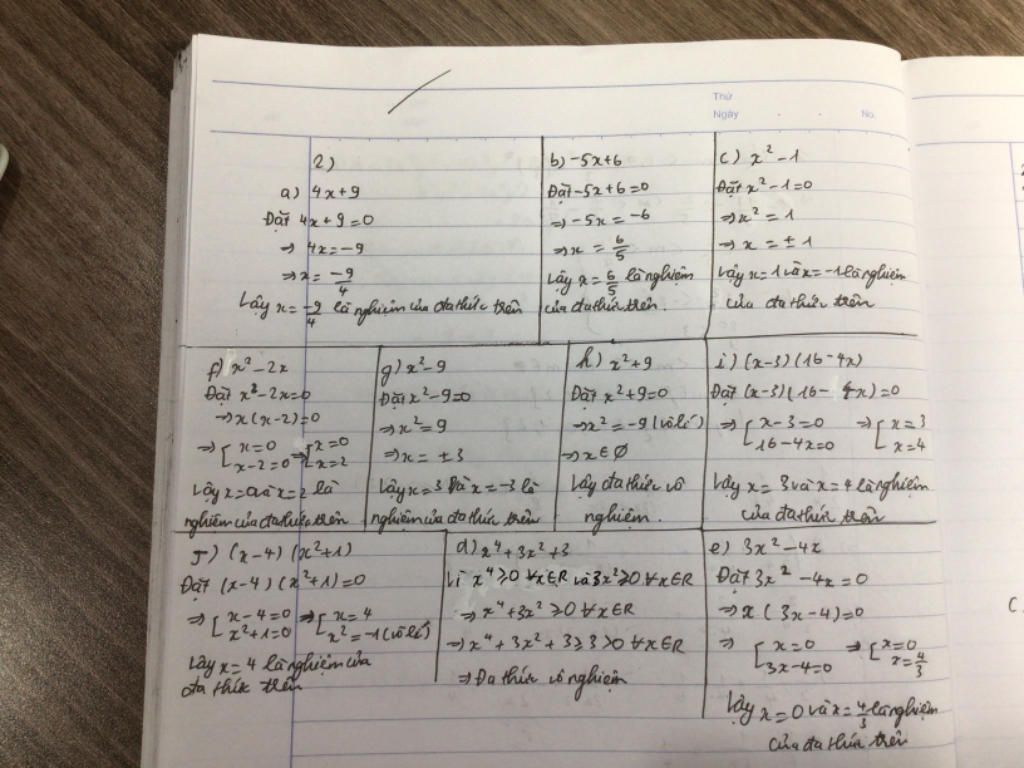 Thứ
Ngày . . No.
2)
a) 4x+9
Đặt 4x+9=0
⇒ 4x=-9
⇒x= -9/4
Vậy x= -9/4 là nghiệm của đa thức trên
b) -5x+6
Đặt -5x+6=0
⇒ -5x = -6
⇒x = 6/5
Vậy x= 6/5 là nghiệm
của đa thức trên.
c) x²-1
Đặt x²-1=0
⇒x²=1
⇒ x = ±1
Vậy x=1 và x=-1 là nghiệm
của đa thức trên
f) x²-2x
Đặt x²-2x=0
⇒x(x-2)=0
⇒ [x=0 ⇒ [x=0
x-2=0 x=2
Vậy x=0 và x=2 là
nghiệm của đa thức trên
g) x²-9
Đặt x²-9=0
⇒x²=9
⇒x= ±3
Vậy x=3 và x=-3 là
nghiệm của đa thức trên
h) x²+9
Đặt x²+9=0
⇒x²=-9 (vô lí)
⇒x∈∅
Vậy đa thức vô
nghiệm.
i) (x-3)(16-4x)
Đặt (x-3)(16-4x)=0
⇒ [x-3=0 ⇒ [x=3
16-4x=0 x=4
Vậy x=3 và x=4 là nghiệm
của đa thức trên
j) (x-4)(x²+1)
Đặt (x-4)(x²+1)=0
⇒ [x-4=0 ⇒ [x=4
x²+1=0 x²=-1 (vô lí)
Vậy x=4 là nghiệm của
đa thức trên
d) x⁴+3x²+3
Vì x⁴≥0 ∀x∈R và 3x²≥0 ∀x∈R
⇒ x⁴+3x²≥0 ∀x∈R
⇒ x⁴+3x²+3≥3>0 ∀x∈R
⇒ Đa thức vô nghiệm
e) 3x²-4x
Đặt 3x²-4x=0
⇒x(3x-4)=0
⇒ [x=0 ⇒ [x=0
3x-4=0 x=4/3
Vậy x=0 và x=4/3 là nghiệm
của đa thức trên